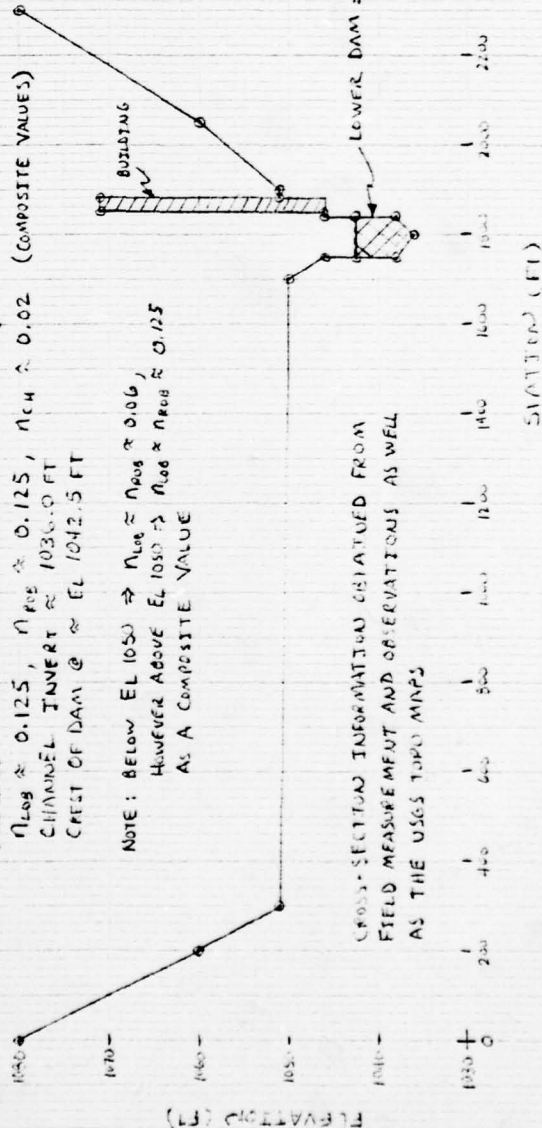 n_LOB ≈ 0.125, n_ROB ≈ 0.125, n_CH ≈ 0.02 (COMPOSITE VALUES)
CHANNEL INVERT ≈ 1036.0 FT
CREST OF DAM @ ≈ EL 1042.5 FT
NOTE: BELOW EL 1050 ⇒ n_LOB ≈ n_ROB ≈ 0.06,
HOWEVER ABOVE EL 1050 ⇒ n_LOB ≈ n_ROB ≈ 0.125
AS A COMPOSITE VALUE
BUILDING
LOWER DAM =
CROSS-SECTION INFORMATION OBTAINED FROM
FIELD MEASUREMENT AND OBSERVATIONS AS WELL
AS THE USGS TOPO MAPS
ELEVATION (FT)
1080
1070
1060
1050
1040
1030
0
200
400
600
800
1000
1200
1400
1600
1800
2000
2200
STATION (FT)